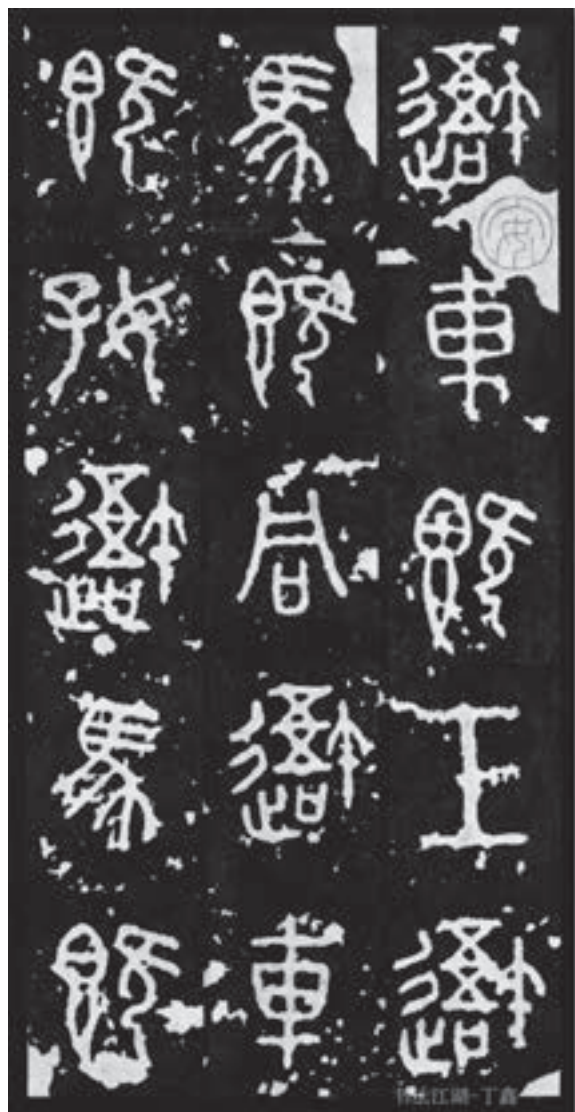 吾車既工吾
馬既同吾車
既好吾馬既
书法江湖-丁鑫